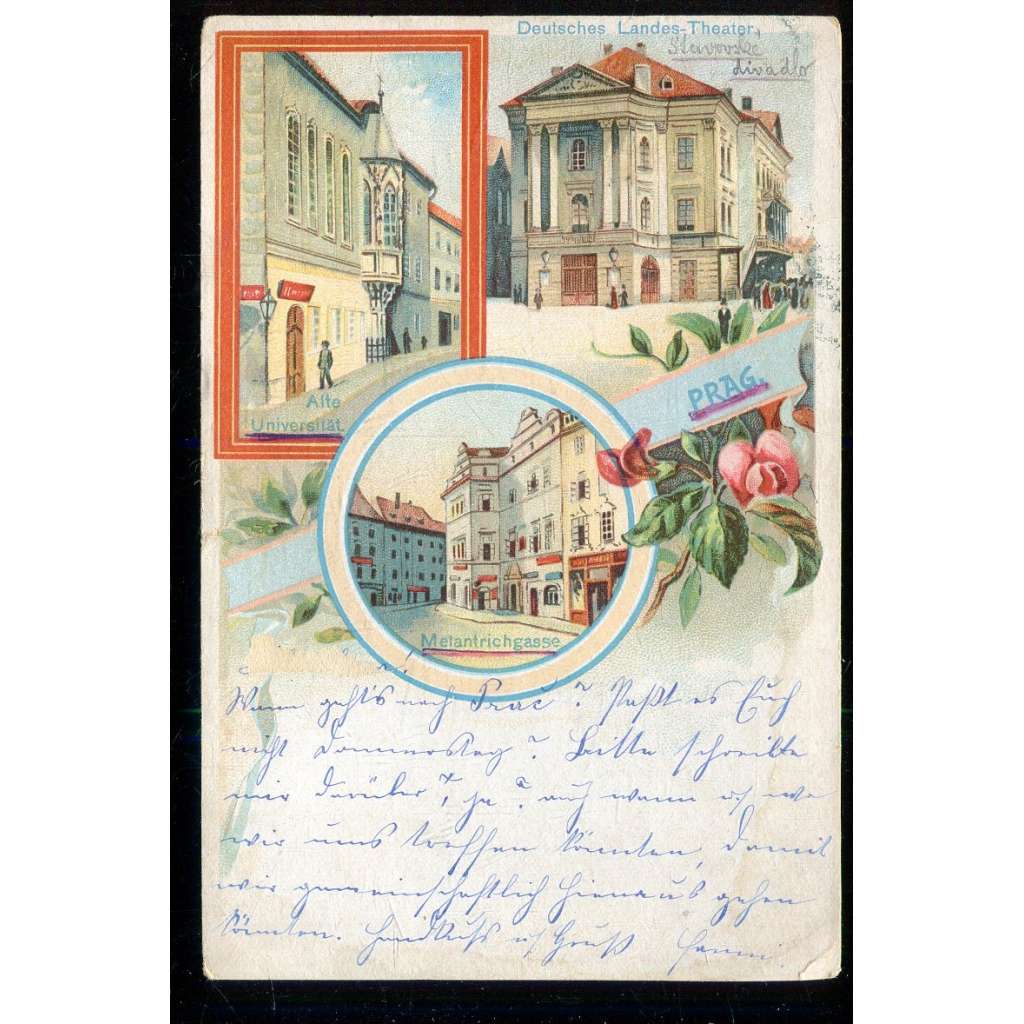 Deutsches Landes-Theater,
Stavovske
divadlo
Alte
Universität.
PRAG.
Melantrichgasse
Wann geht's nach ? Paßt es Euch
nicht Donnerstag? Bitte schreibe
mir darüber, ja? auch wann u. wo
wir uns treffen könnten, damit
wir gemeinschaftlich hinaus gehen
könnten. Handkuss u. Gruß